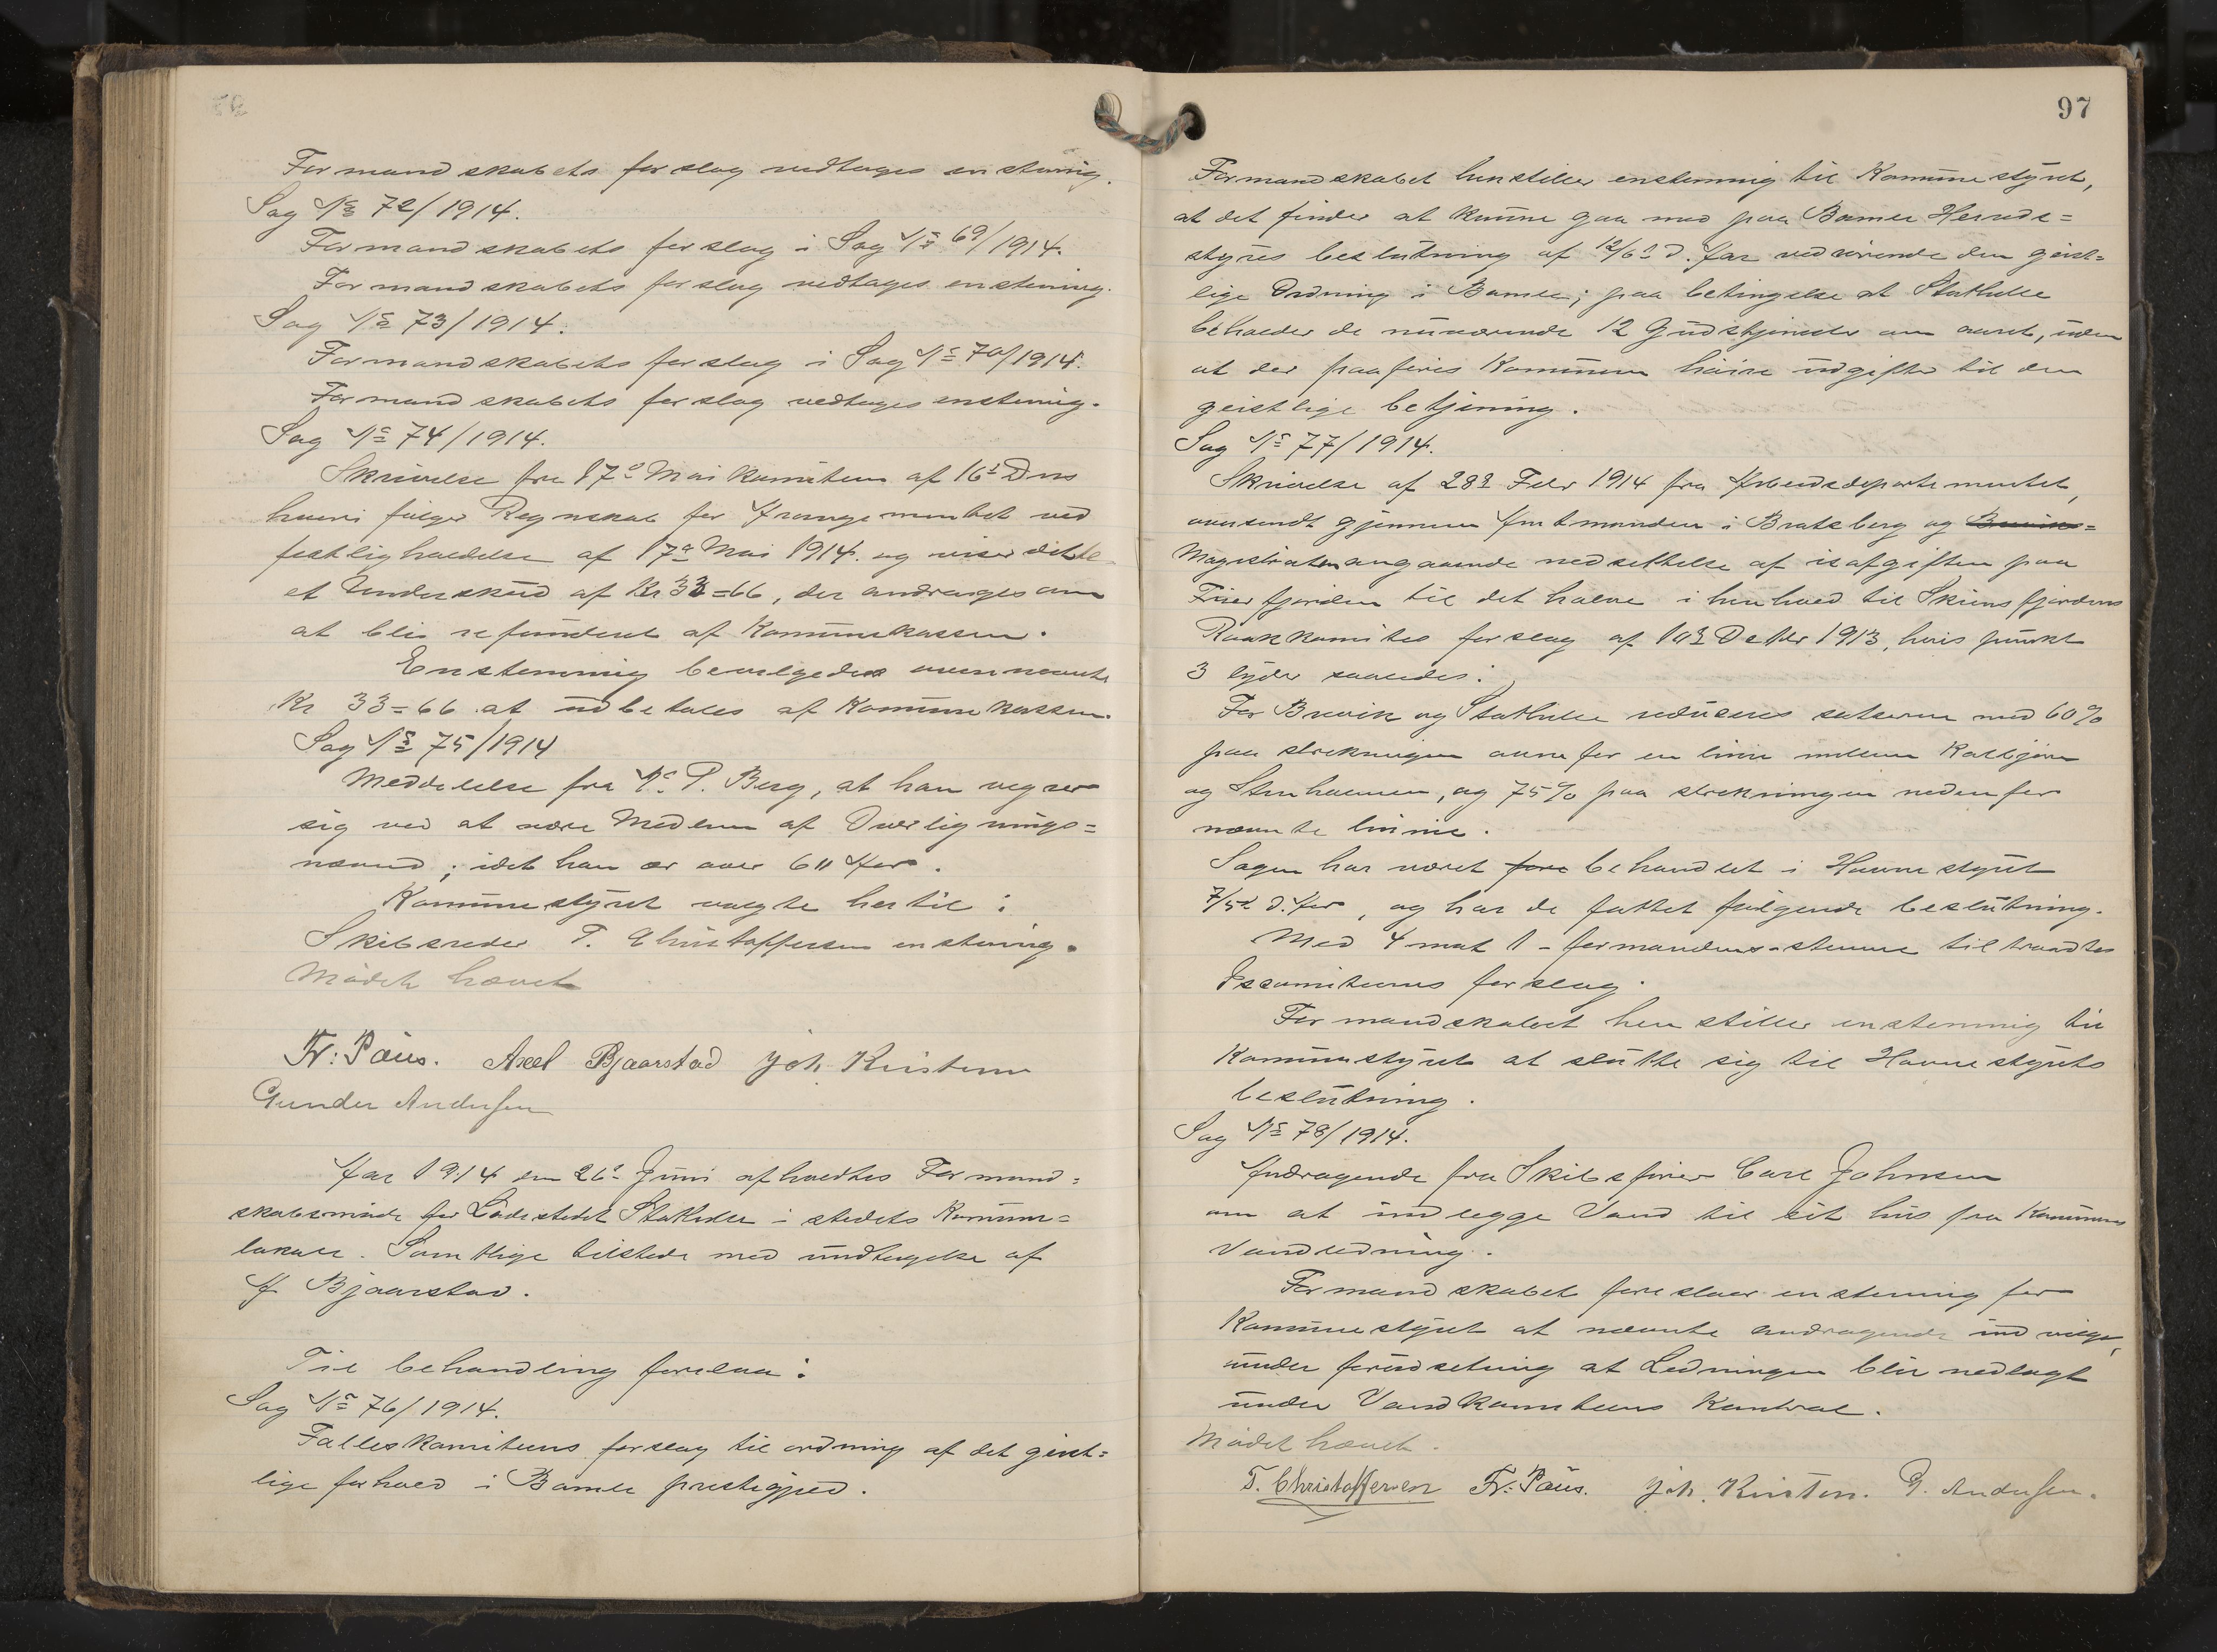 Formandskabets forslag vedtages enstemig.
Sag No 72/1914.
Formandskabets forslag i Sag No 69/1914.
Formandskabets forslag vedtages enstemig.
Sag No 73/1914.
Formandskabets forslag i Sag No 70/1914.
Formandskabets forslag vedtages enstemig.
Sag No 74/1914.
Skrivelse fra 17de Mai Komiteen af 16de Dns
hvori følger Regnskab for Arrangementet ved
festligholdelse af 17de Mai 1914. og viser dette
et Underskud af Kr 33=66, der andrages om
at bli refunderet af Kommunekassen.
Enstemmig bevilgedes ovennævnte
Kr 33=66 at udbetales af Kommunekassen.
Sag No 75/1914
Meddelelse fra N. P. Berg, at han vegrer
sig ved at være Medlem af Overlignings=
nævnd; idet han er over 60 Aar.
Kommunestyret valgte hertil:
Skibsreder T. Christoffersen enstemig.
Mødet hævet
Fr: Paus. Axel Bjaarstad Joh. Kristensen
Gunder Andersen
Aar 1914 den 26de Juni afholdtes Formand=
skabsmøde for Ladestedet Stathelle i stedets Kommune=
lokale. Samtlige tilstede med undtagelse af
A Bjaarstad.
Til behandling forelaa:
Sag No 76/1914.
Falleskomiteens forslag til ordning af det geist=
lige forhold i Bamle prestegjed.
97
Formandskabet henstiller enstemmig til Kommunestyret,
at det finder at kunne gaa med paa Bamle Herreds=
styres beslutning af 12/6de d. Aar vedrørende den geist=
lige Ordning i Bamle; paa betingelse at Stathelle
beholder de nuværende 12 Gudstjenester om aaret, uden
at der paaføres Kommunen høiere udgifter til den
geistlige betjening.
Sag No 77/1914.
Skrivelse af 28de Febr 1914 fra Arbeidsdepartementet,
oversendt gjennem Amtmanden i Bratsberg og Breviks=
Magistraten angaaende nedsettelse af isafgiften paa
Frierfjorden til det halve i henhold til Skiensfjordens
Raakkomites forslag af 10de Dektbr 1913, hvis punkt
3 lyder saaledes:
For Brevik og Stathelle reduseres satserne med 60%
paa strekningen ovenfor en linie mellem Kalbjørn
og Stenholmen, og 75% paa strekningen nedenfor
nevnte linnie.
Sagen har været fore behandlet i Havnestyret
7/5de d. Aar, og har de fattet følgende beslutning.
Med 4 mot 1 - formandens - stemme tiltraadtes
Iscomiteens forslag.
Formandskabet henstiller enstemmig til
Kommunestyret at slutte sig til Havnestyrets
beslutning.
Sag No 78/1914.
Andragende fra Skibsfører Carl Johnsen
om at indlegge Vand til sit hus fra Kommunens
Vandledning.
Formandskabet foreslaar enstemig for
Kommunestyret at nevnte andragende indvilges,
under forudsetning at Ledningen blir nedlagt
under Vandkomiteens Kontrol.
Mødet hævet.
T. Christoffersen Fr: Paus. Joh. Kristensen. G. Andersen.